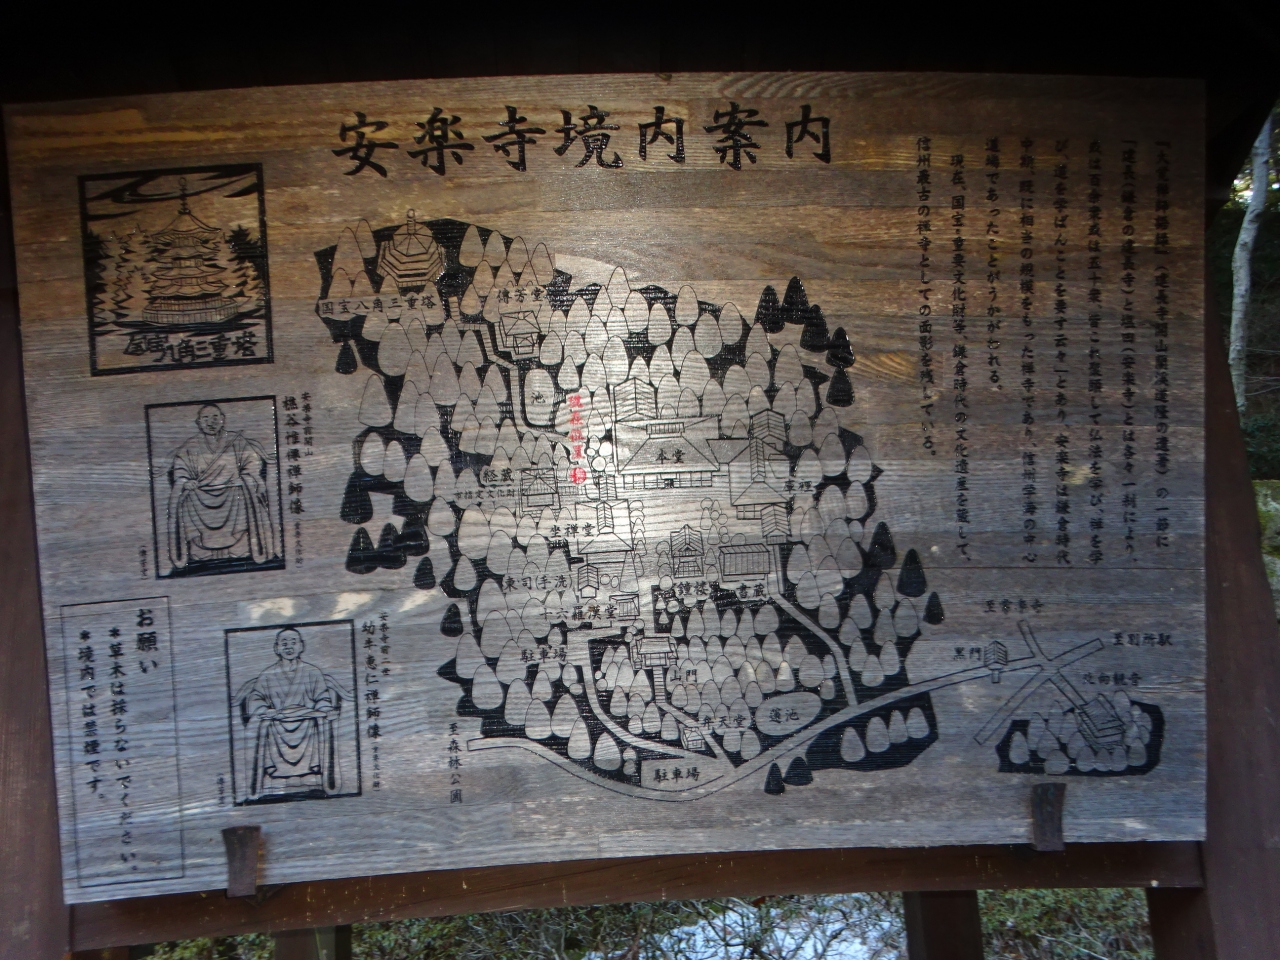 安楽寺境内案内
『大覚禅師語録』(建長寺開山蘭渓道隆の遺著)の一節に
「建長(鎌倉の建長寺)と塩田(安楽寺)とは各々一刹により、
或は百余衆或は五十衆、皆これ聚頭して仏法を学び、禅を学
び、道を学ばんことを要す云々」とあり、安楽寺は鎌倉時代
中期、既に相当の規模をもった禅寺であり、信州学海の中心
道場であったことがうかがわれる。
現在、国宝・重要文化財等、鎌倉時代の文化遺産を蔵して、
信州最古の禅寺としての面影を残している。
国宝八角三重塔
安楽寺開山
樵谷惟僊禅師像
安楽寺二世
幼牛恵仁禅師像
お願い
*草木は採らないでください。
*境内では禁煙です。
国宝八角三重塔
傳芳堂
池
現在位置
本堂
経蔵
市指定文化財
庫裡
坐禅堂
東司(手洗)
鐘楼
書蔵
十六羅漢堂
駐車場
山門
弁天堂
蓮池
駐車場
至森林公園
至常楽寺
黒門
至別所駅
北向観音